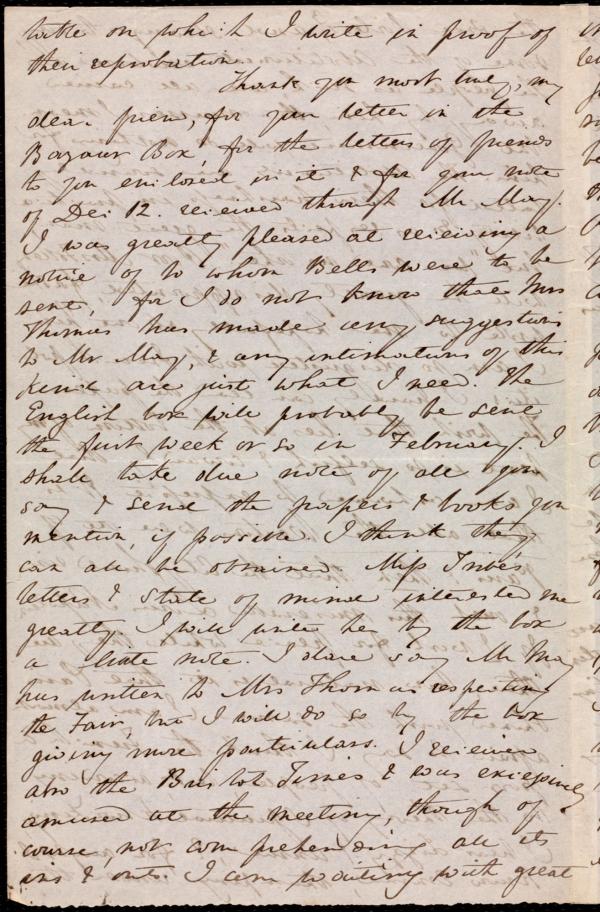 table on which I write in proof of
their reprobation.
Thank you most truly, my
dear friend, for your letter in the
Bazaar Box, for the letters of friends
to you enclosed in it & for your note
of Dec. 12. received through Mr May.
I was greatly pleased at receiving a
notice of to whom Bells were to be
sent, for I do not know that Mrs
Thomas has made any suggestions
to Mr May, & any intimations of this
kind are just what I need. The
English box will probably be sent
the first week or so in February. I
shall take due note of all you
say & send the papers & books you
mention, if possible. I think they
can all be obtained. Miss Tribe's
letters & state of mind interested me
greatly. I will write her by the box
a little note. I dare say Mr May
has written to Mrs Thomas respecting
the Fair, but I will do so by the box
giving more particulars. I received
also the Bristol Times & was excessively
amused at the meeting, though of
course, not comprehending all its
ins & outs. I am waiting with great